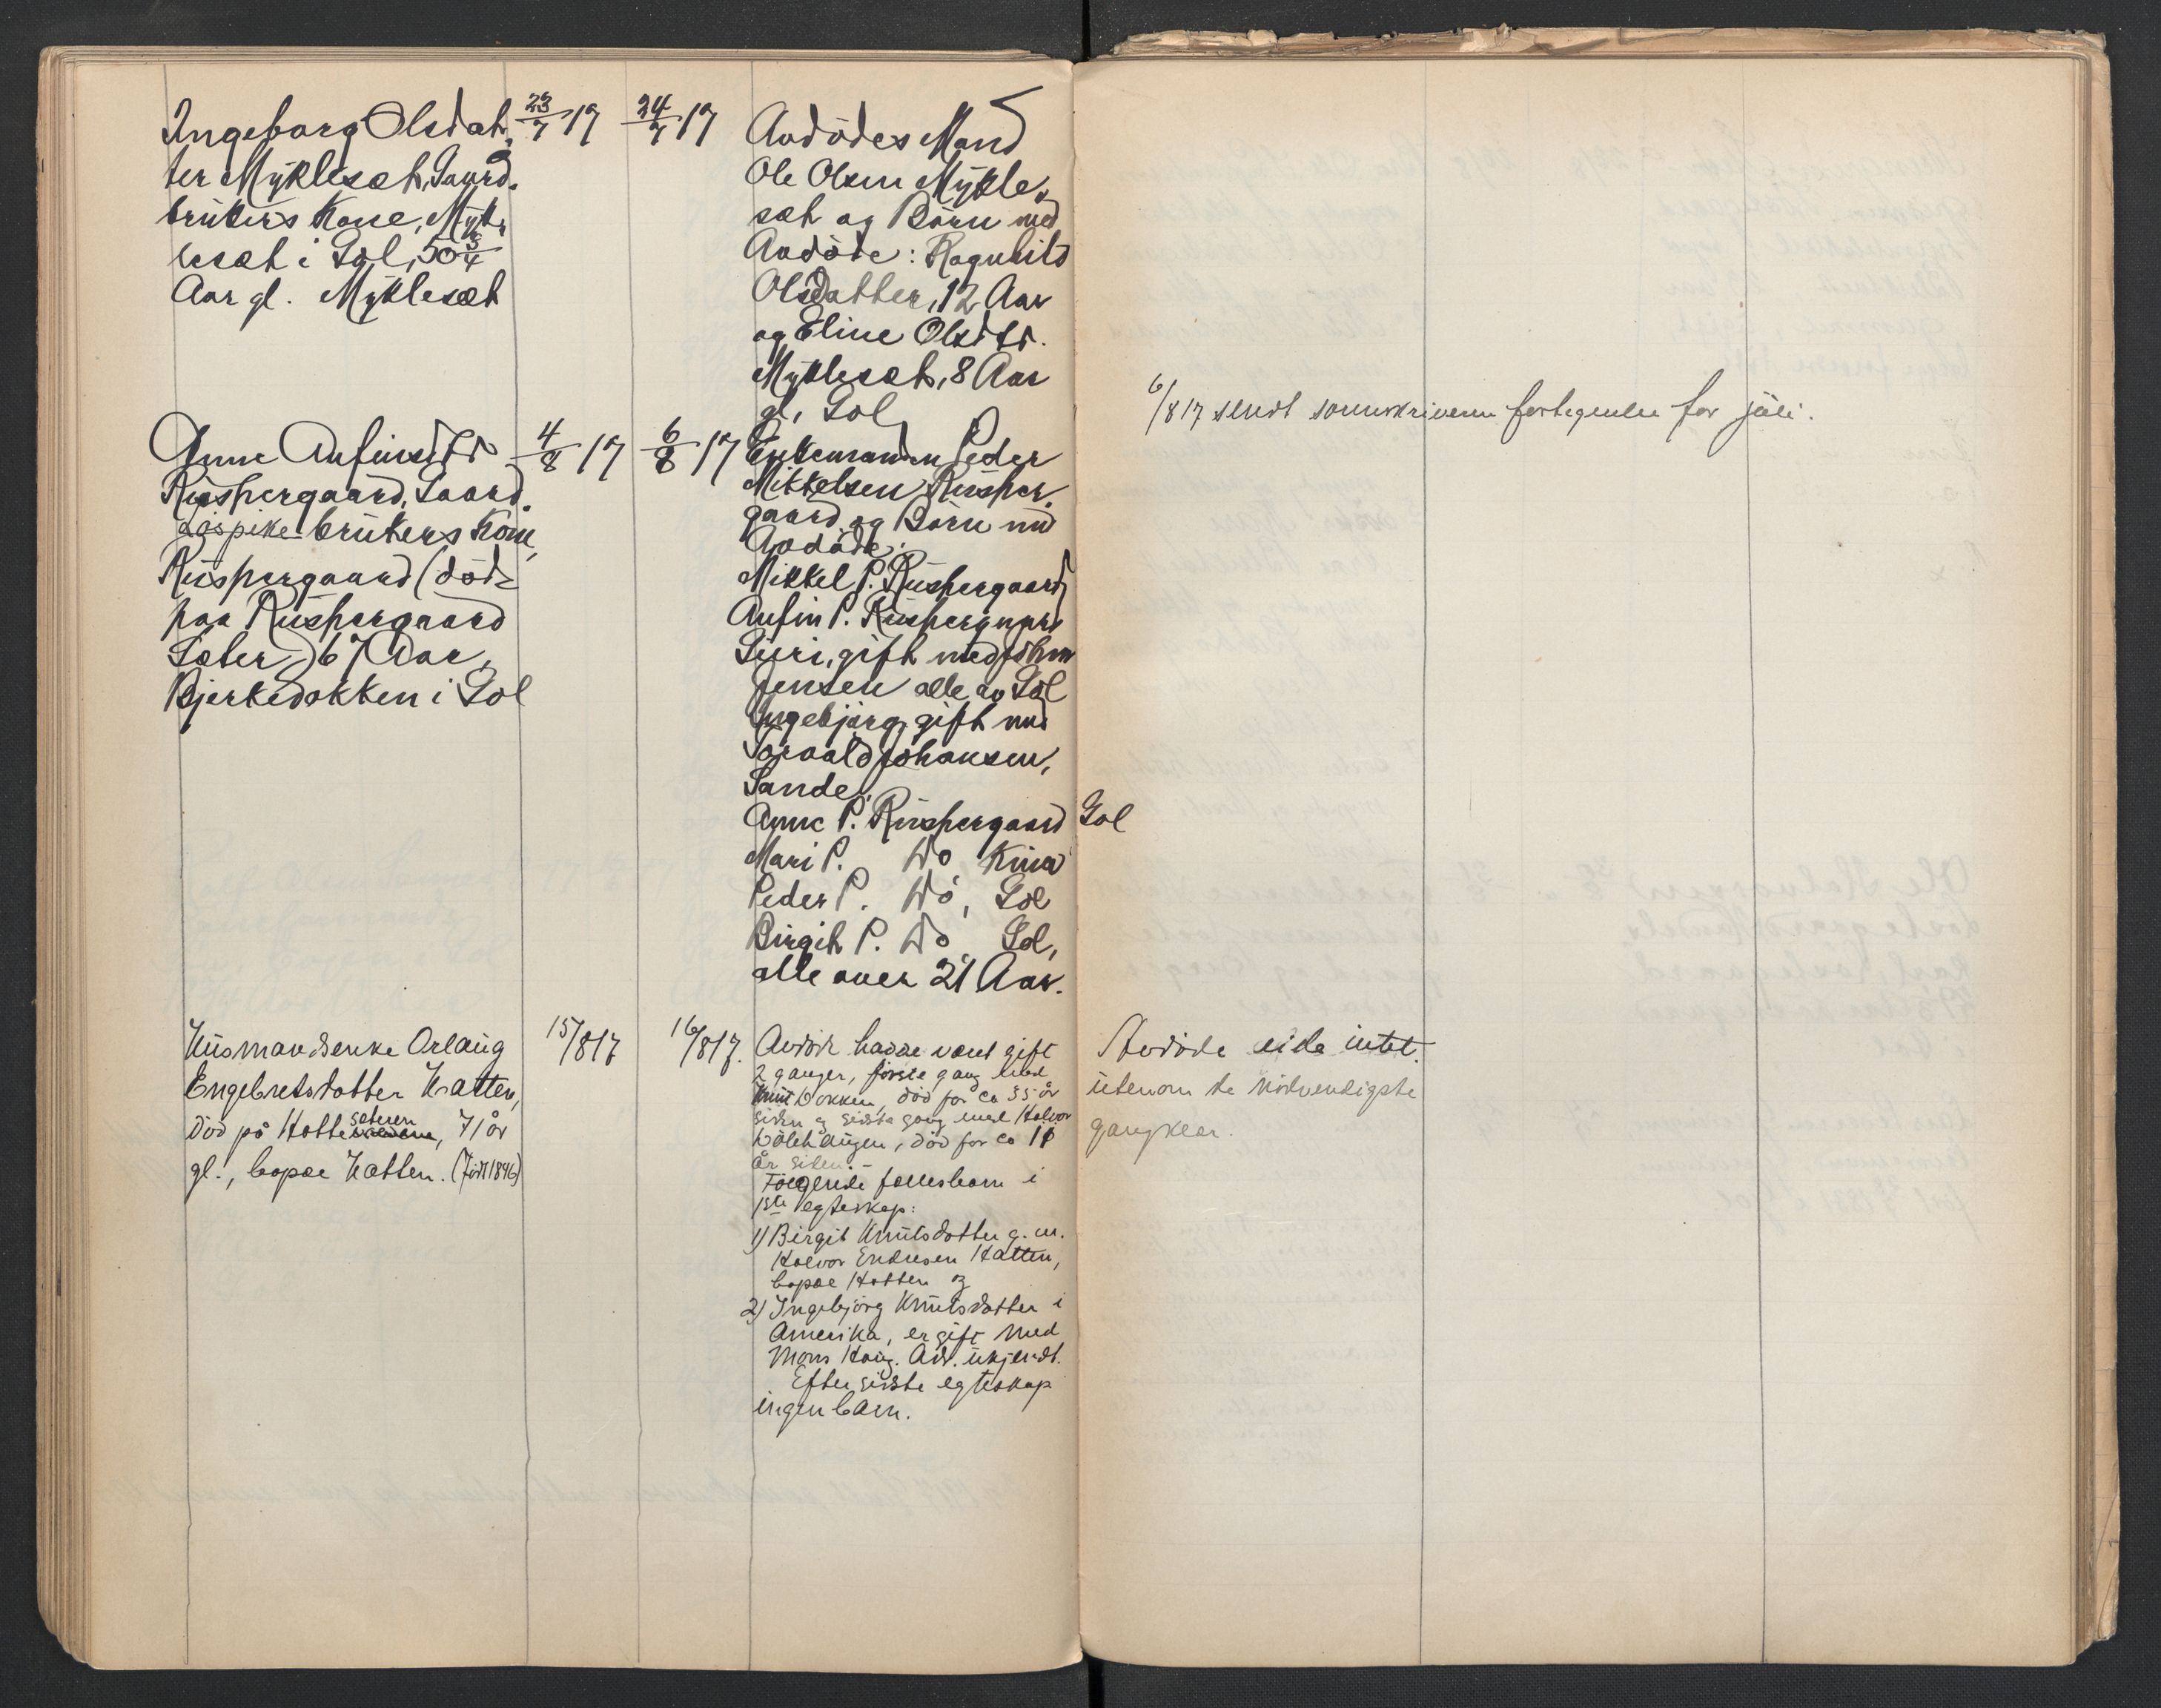 Ingeborg Olsdat-
ter Myklesæt, Gaard-
brukers Kone, Myk-
lesæt i Gol, 50 3/4
Aar gl. Myklesæt
23/7 17
24/7 17
Avdödes Mand
Ole Olsen Mykle-
sæt og Börn med
Avdöde: Ragnhild
Olsdatter, 12 Aar
og Eline Olsdtr.
Myklesæt, 8 Aar
gl. Gol
6/8 17 sendt sorenskriveren fortegnelse for juli.
Anne Anfinsdtr
Ruspergaard, Gaard-
brukers Kone,
Ruspergaard (död
paa Ruspergaard
Sæter) 67 Aar,
Bjerkedokken i Gol
4/8 17
6/8 17
Enkemanden Peder
Mikkelsen Rusper-
gaard og Börn med
Avdöde:
Mikkel P. Ruspergaard
Anfin P. Ruspergaard
Guri, gift med John
Jensen alle av Gol
Ingebjörg, gift med
Torvald Johansen,
Sande,
Anne P. Ruspergaard Gol
Mari P. Do Kina
Peder P. Do, Gol
Birgit P. Do, Gol,
alle over 21 Aar.
Husmandsenke Orlaug
Engebretsdatter Hatten,
Död på Hatteseteren, 71 år
gl., bopæl Hatten. (Född 1846)
15/8 17
16/8 17.
Avdöde hadde været gift
2 ganger, förste gang med
Knut Dokken, död for ca 35 år
siden og sidste gang med Halvor
, död for ca 11
år siden.-
Fölgende fællesbarn i
1ste egteskap:
1) Birgit Knutsdatter g. m.
Halvor Endresen Hatten,
bopæl Hatten og
2) Ingebjörg Knutsdatter i
Amerika, er gift med
Mons Haug. Adr. ukjendt.
Efter sidste egteskap
ingen barn.
Avdöde eide intet
utenom de nödvendigste
gangklær.